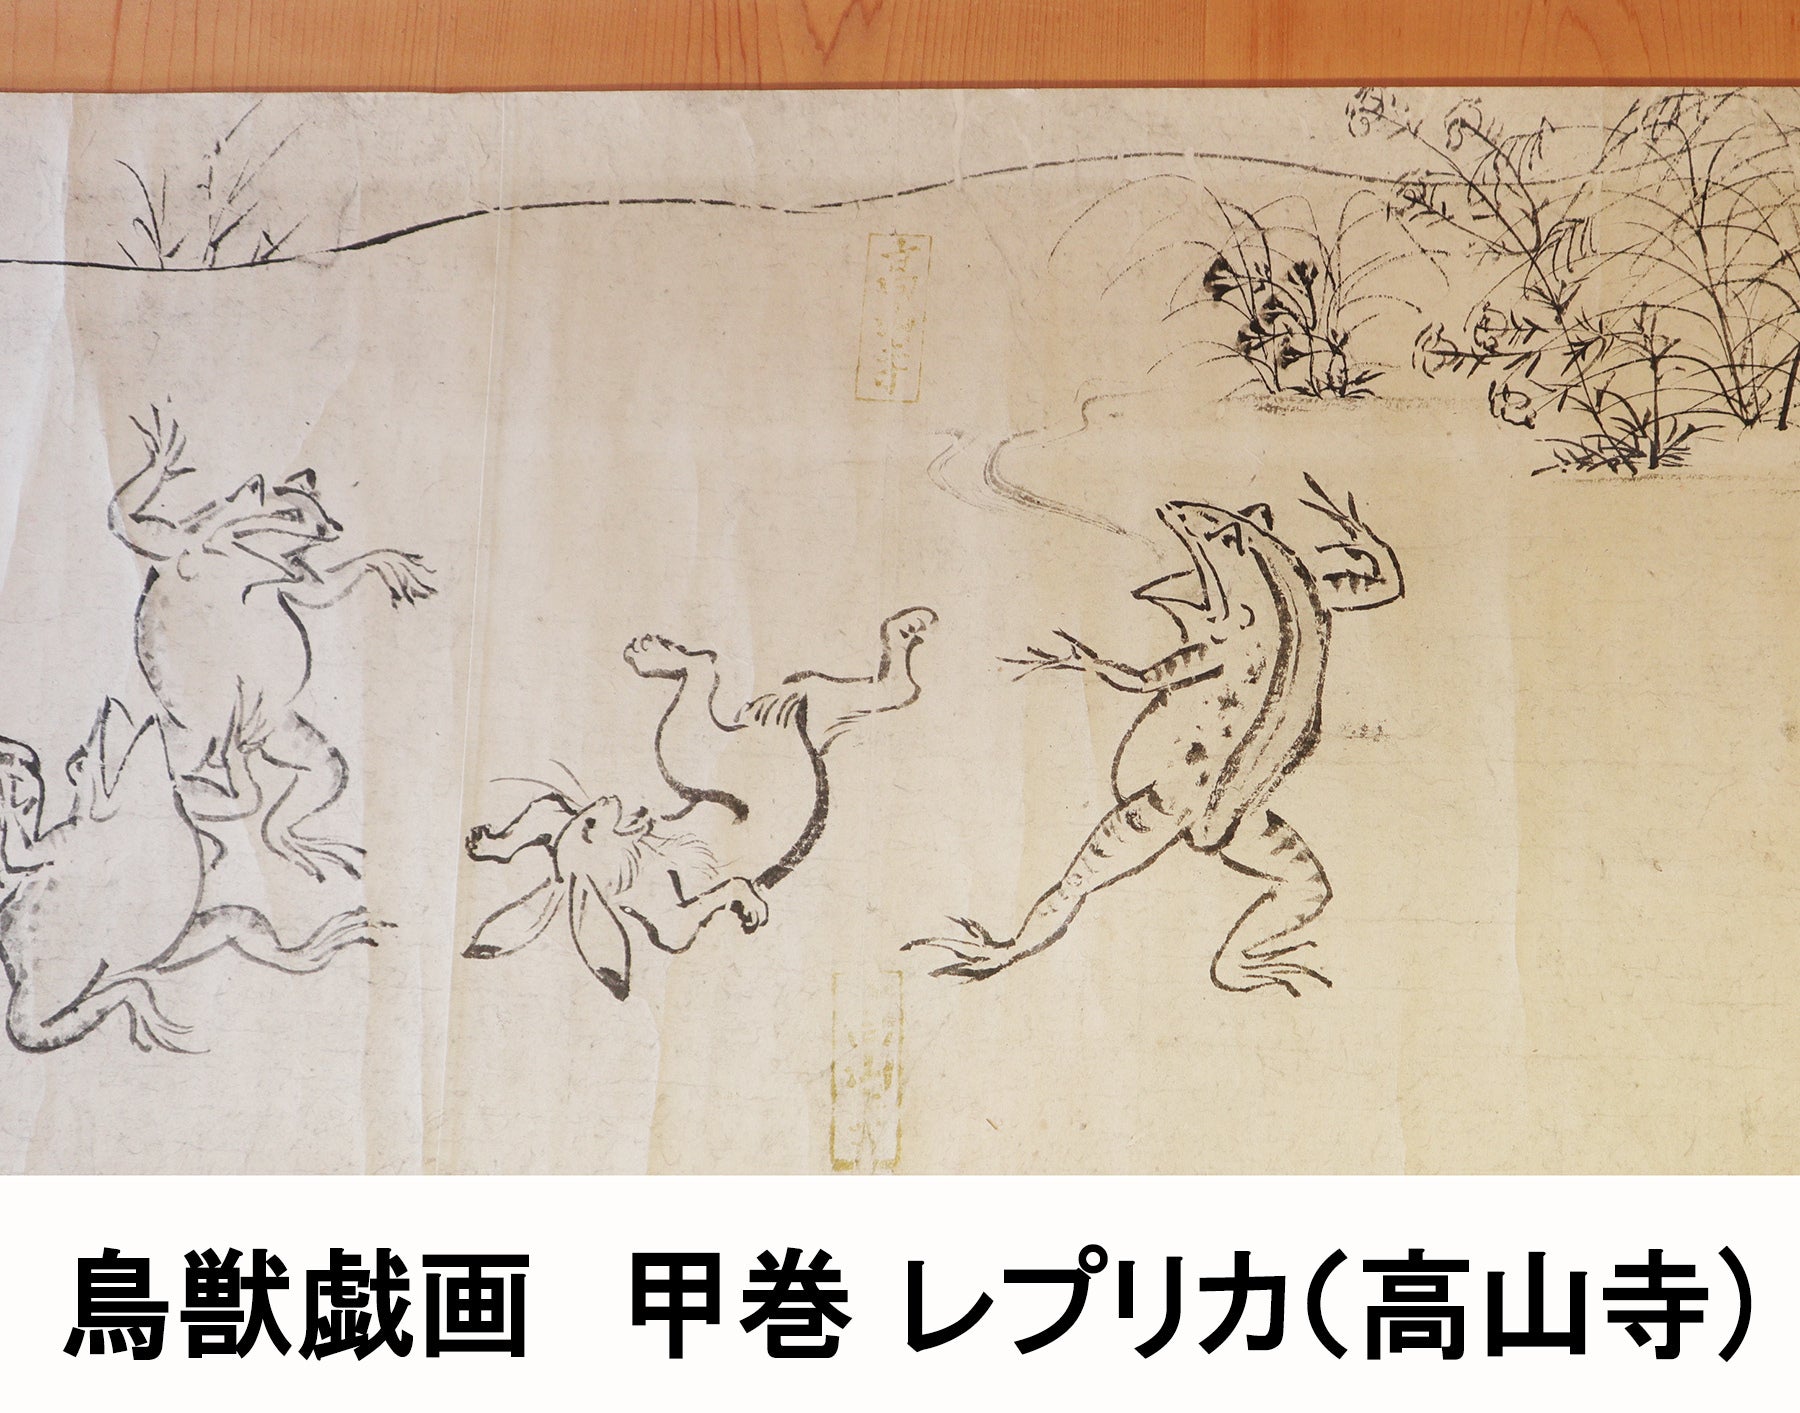 鳥獣戯画　甲巻 レプリカ（高山寺）